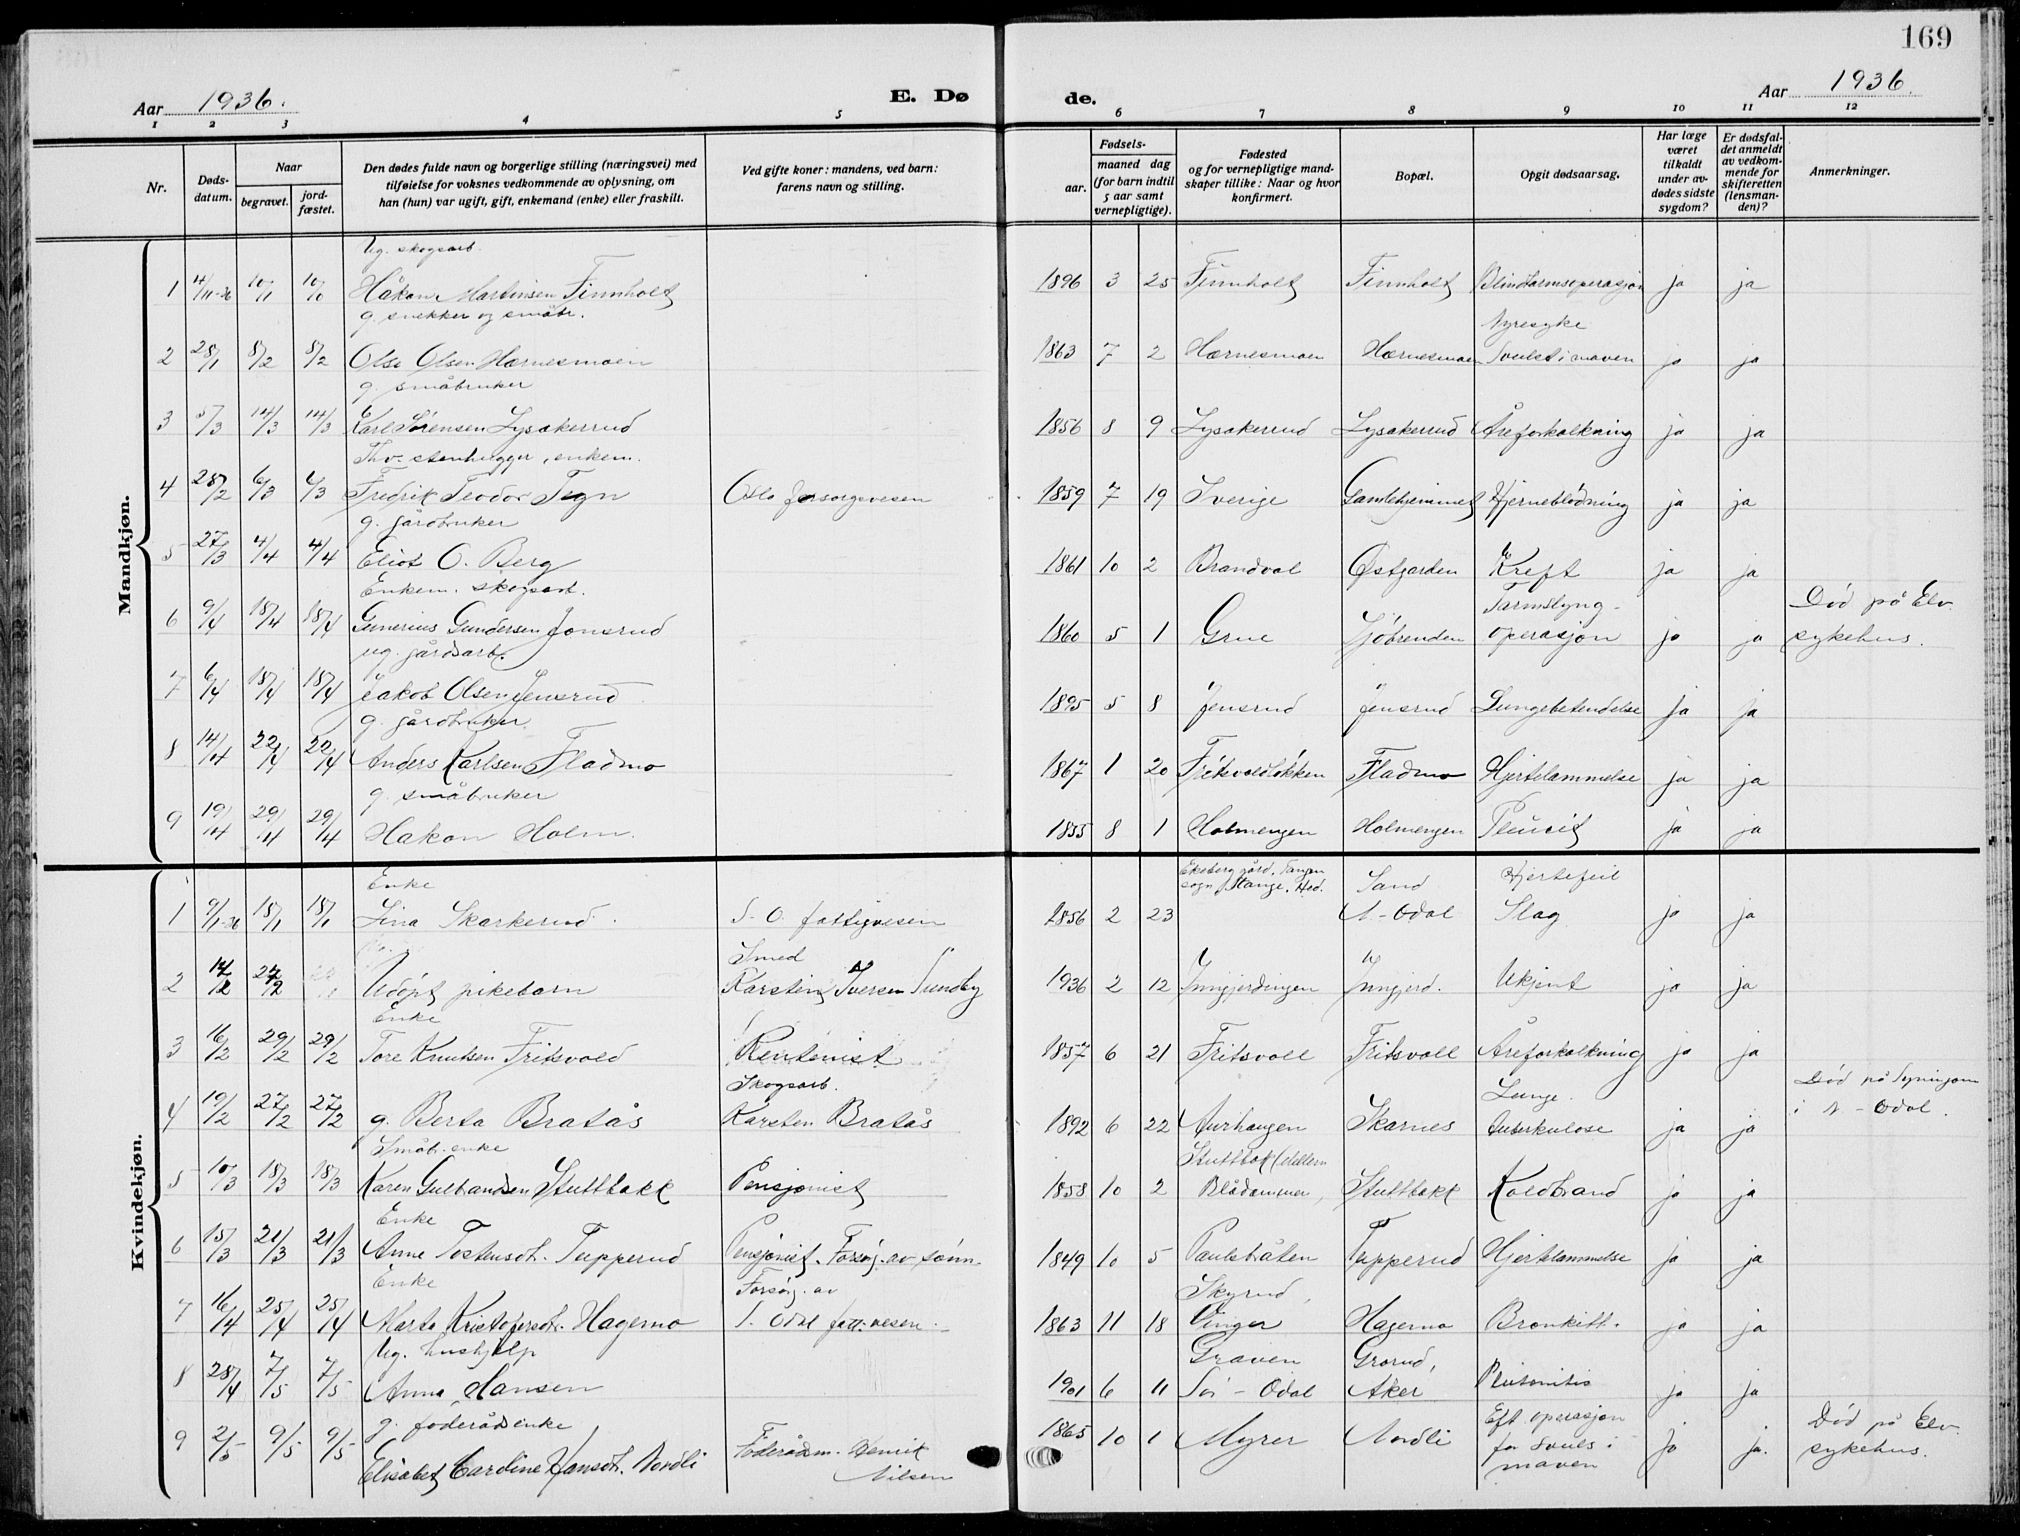 169
Aar 1936.
E. Dø de.
Aar 1936.
1 2 3 4 5 6 7 8 9 10 11 12
Nr.
Døds-
datum.
Naar
begravet.
jord-
fæstet.
Den dødes fulde navn og borgerlige stilling (næringsvei) med
tilføielse for voksnes vedkommende av oplysning, om
han (hun) var ugift, gift, enkemand (enke) eller fraskilt.
Ved gifte koner: mandens, ved barn:
farens navn og stilling.
Fødsels-
aar.
maaned dag
(for barn indtil
5 aar samt
vernepligtige).
Fødested
og for vernepligtige mand-
skaper tillike: Naar og hvor
konfirmert.
Bopæl.
Opgit dødsaarsag.
Har læge
været
tilkaldt
under av-
dødes sidste
sygdom?
Er dødsfal-
det anmeldt
av vedkom-
mende for
skifteretten
(lensman-
den)?
Anmerkninger.
Mandkjøn.
Ug. skogsarb.
1 4/1-36 10/1 10/1 Håkon Martinsen Finnholt 1896 3 25 Finnholt Finnholt Blindtarmsoperasjon ja ja
g. snekker og småbr. Nyresyke
2 28/1 8/2 8/2 Olse Olsen Hærnesmoen 1863 7 2 Hærnesmoen Hærnesmoen Svulst i maven ja ja
g. småbruker
3 5/3 14/3 14/3 Karl Sørensen Lysakerrud 1856 8 9 Lysakerrud Lysakerrud Åreforkalkning ja ja
Fhv. stenhugger, enkem.
4 28/2 6/3 6/3 Fredrik Teodor Tegn Oslo forsorgsvesen 1859 7 19 Sverige Gamlehjemmet Hjerneblødning ja ja
g. gårdbruker
5 27/3 4/4 4/4 Eliot O. Berg 1861 10 2 Brandval Østgarden Kreft ja ja
Enkem. skogsarb. Tarmslyng- Død på Elv.
6 9/4 18/4 18/4 Gunerius Gundersen Jonsrud 1860 5 1 Grue Sjøbrenden operasjon ja ja sykehus.
ug. gårdsarb.
7 6/4 18/4 18/4 Jakob Olsen Jensrud 1895 5 8 Jensrud Jensrud Lungebetendelse ja ja
g. gårdbruker
8 14/4 22/4 22/4 Anders Karlsen Fladmo 1867 1 20 Fritsvoldløkken Fladmo Hjertelammelse ja ja
g. småbruker
9 19/4 29/4 29/4 Hakon Holm. 1855 8 1 Holmengen Holmengen Pleurit ja ja
Kvindekjøn.
Enke Ekeberg gård, Tangen Sand Hjertefeil
sogn, Stange, Hed.
1 9/1-36 18/1 18/1 Lina Skarkerud. S. O. fattigvesen 1856 2 23 N-Odal Slag ja ja
Smed
2 12/2 22/2 Udøpt pikebarn Karsten Iversen Sundby 1936 2 12 Inngjerdingen Inngjerd. Ukjent ja ja
Enke
3 16/2 29/2 29/2 Tore Knutsen Fritsvold Rentenist 1857 6 21 Fritsvoll Fritsvoll Åreforkalkning ja ja
Skogsarb. Lunge. Død på
4 19/2 27/2 27/2 g. Berta Bratås Karsten Bratås 1892 6 22 Aurhaugen Skarnes tuberkulose ja ja i N-Odal.
Småbr. enke Stuttbok
5 10/3 18/3 18/3 Karen Gulbrandsen Stuttbakk Pensjonist 1858 10 2 Blådammen, Stuttbakk Koldbrand ja ja
Enke
6 15/3 21/3 21/3 Anne Tostensdt. Tupperud Pensjonist. Forsørg. av sønn 1849 10 5 Paulsbråten Tupperud Hjertelammelse ja ja
Enke Forsørg. av Skyrud,
7 16/4 25/4 25/4 Marte Kristofersdt. Hagemo S. Odal fatt.vesen. 1863 11 18 Vinger Hagemo Bronkitt. ja ja
Ug. hushjelp Graven Grorud,
8 28/4 7/5 7/5 Anna Hansen 1901 6 11 Sør-Odal Aker ja ja
g. føderådsenke Eft. operasjon Død på Elv.
9 2/5 9/5 9/5 Elisabet Caroline Hansdt. Nordli Føderådsm. Henrik Nilsen 1865 10 1 Myrer Nordli for svuls i maven ja ja. sykehus.